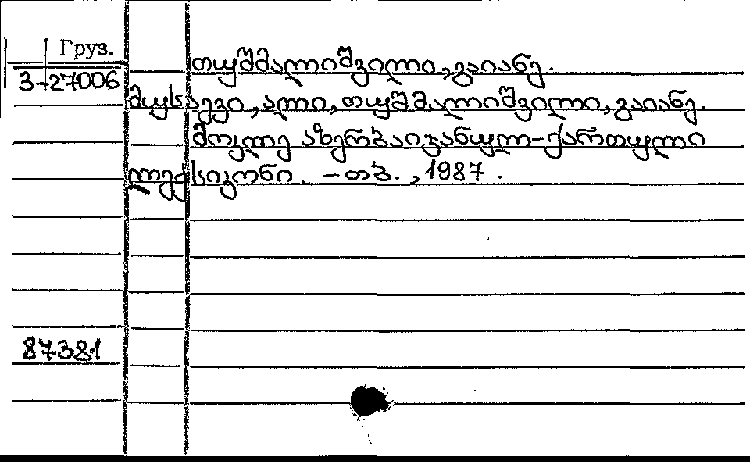 Груз.
თუშმალიშვილი, გაიანე.
3-27006
მუსაევი, ალი, თუშმალიშვილი, გაიანე.
მოკლე აზერბაიჯანულ-ქართული
ლექსიკონი. - თბ., 1987.
87381